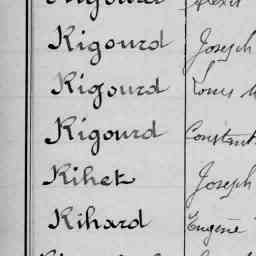 Rigourd Joseph
Rigourd Louis
Rigourd Constant
Rihet Joseph
Rihard Eugène